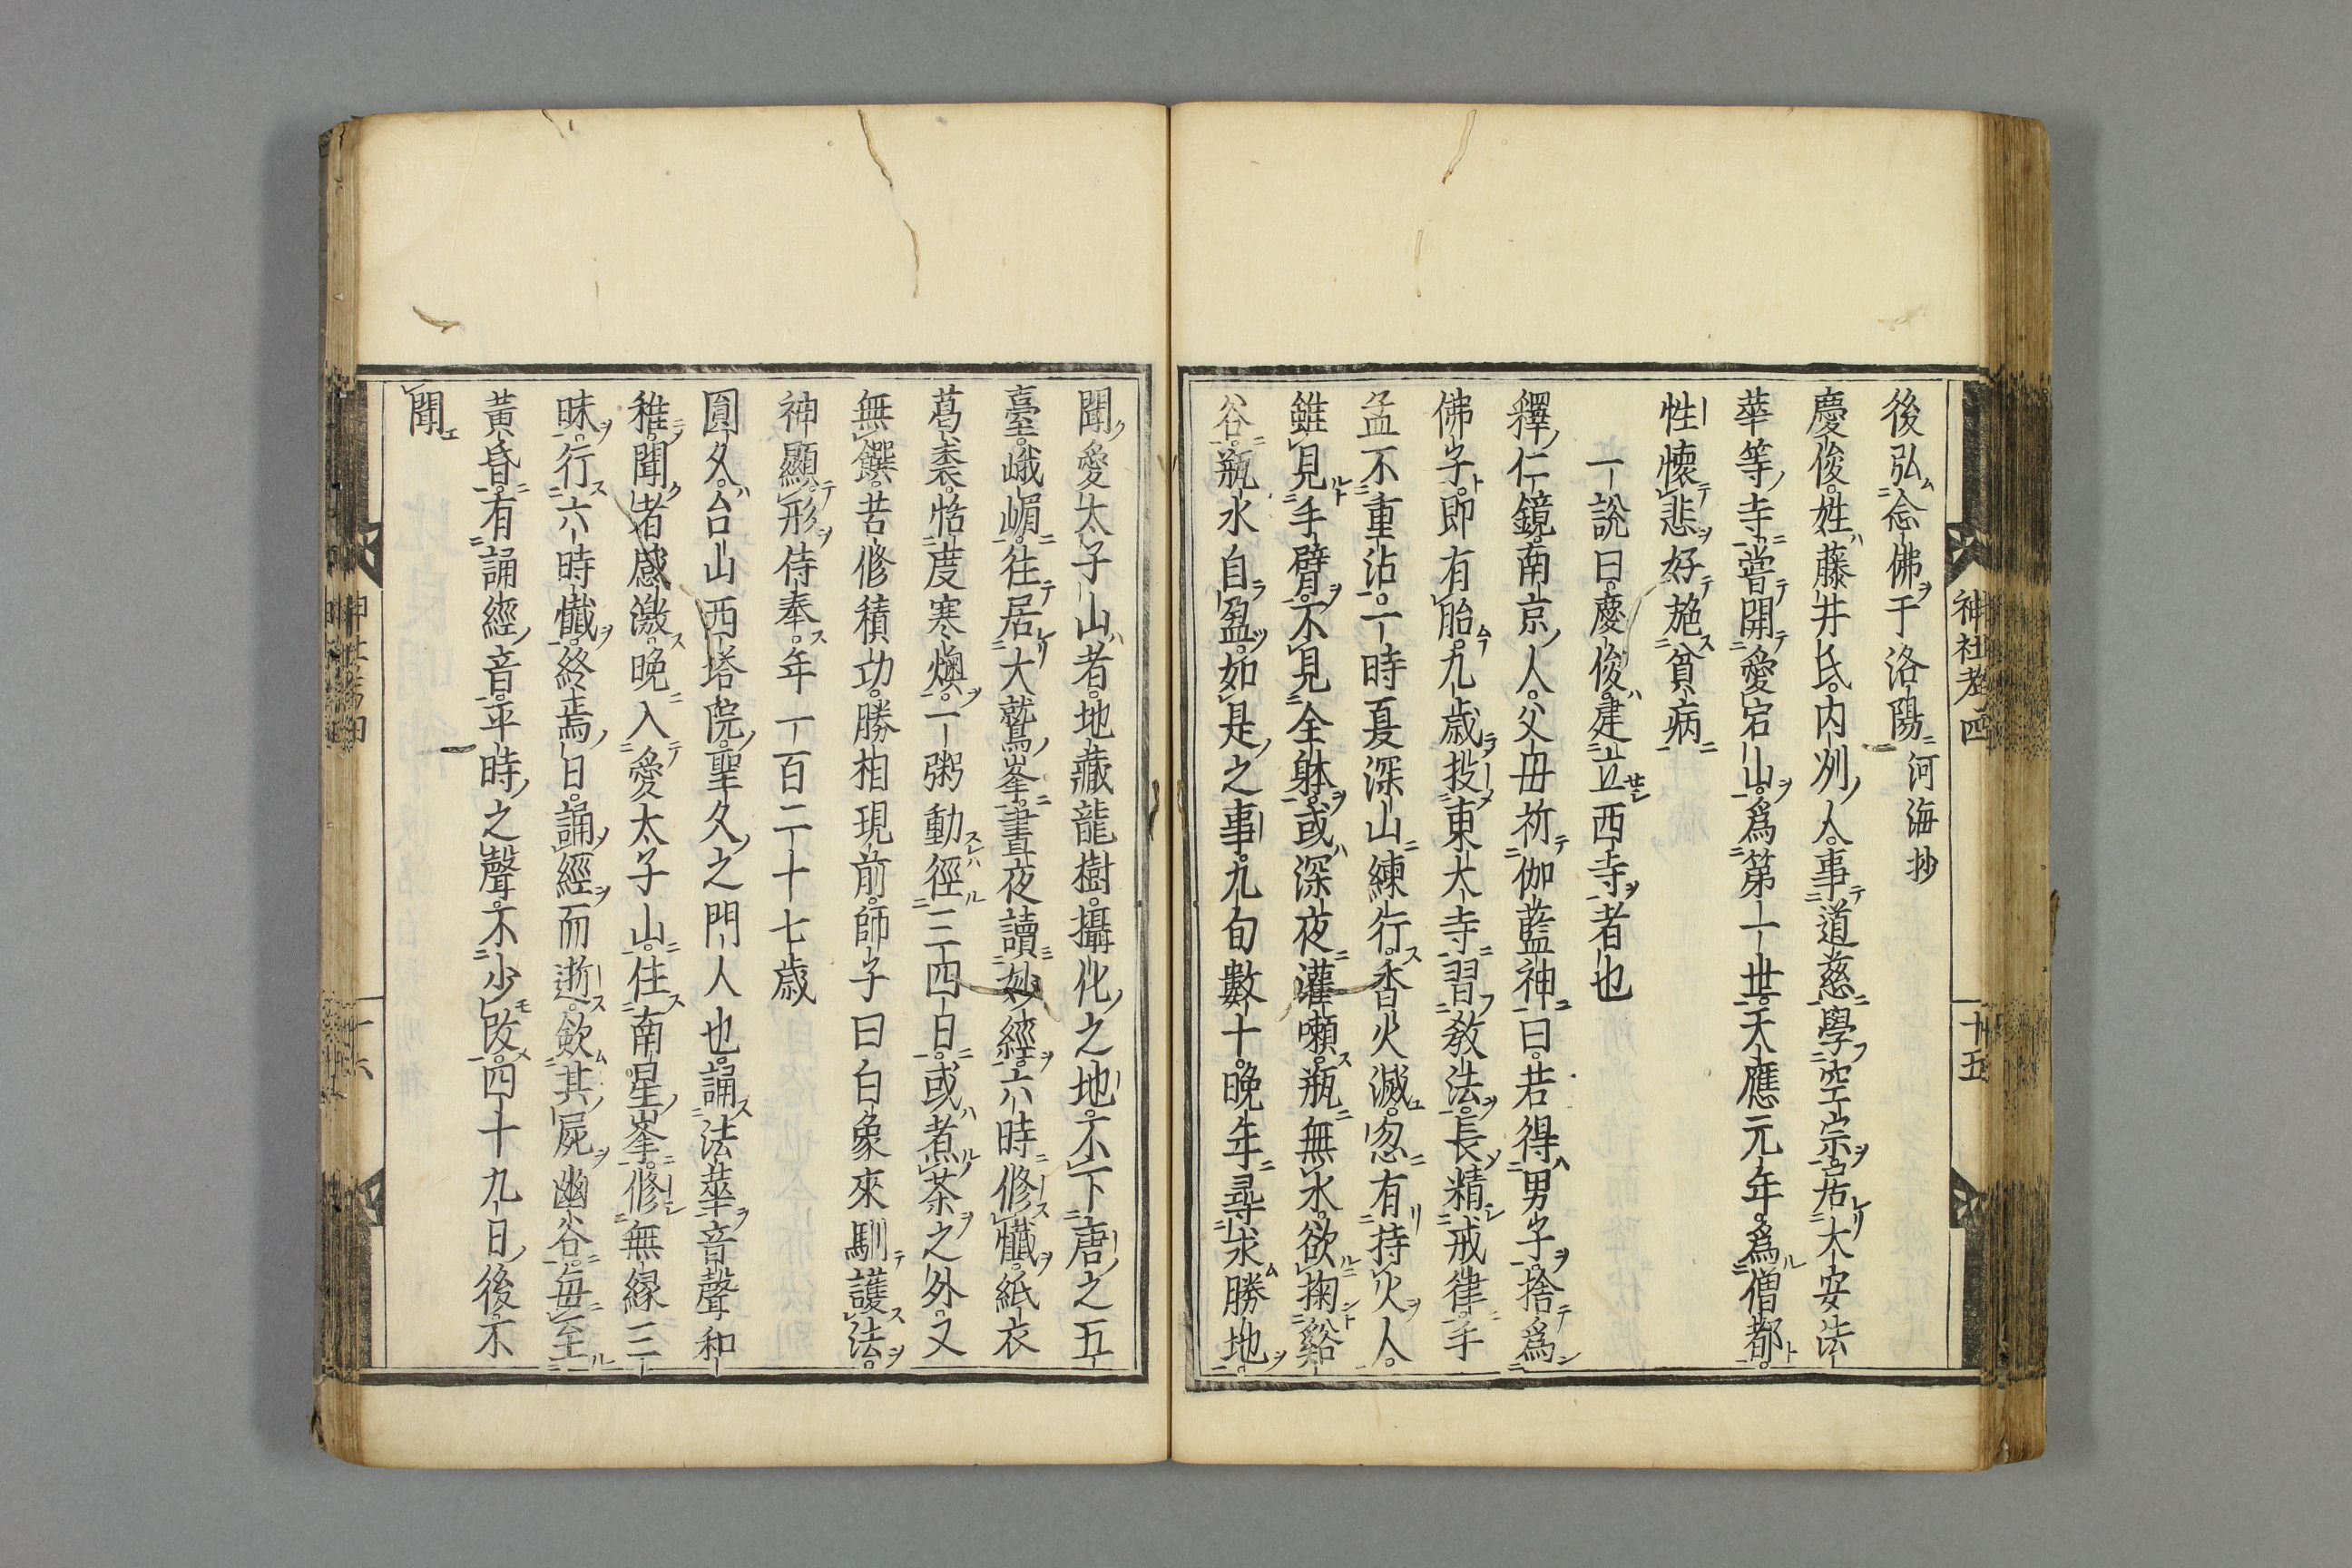 神社考四
十五
後弘念佛于洛陽河海抄
慶俊姓藤井氏内州人事道慈學空宗居大安法
華等寺嘗開愛宕山爲第一世天應元年爲僧都
性懷悲好施貧病
一說曰慶俊建立西寺者也
釋仁鏡南京人父母祈伽藍神曰若得男子捨爲
佛子即有胎九歳投東大寺習教法長精戒律手
盂不重沾一時夏深山練行香火滅忽有持火人
雖見手臂不見全躰或深夜灌嗽瓶無水欲掬谿
谷瓶水自盈如是之事九旬數十晚年尋求勝地
聞愛太子山者地藏龍樹攝化之地不下唐之五
臺峨嵋往居大鷲峯晝夜讀妙經六時修懺紙衣
葛褰恬度寒燠一粥動徑三四日或煮茶之外又
無饌苦修積功勝相現前師子曰白象來馴護法
神顯形侍奉年一百二十七歳
圓久台山西塔院聖久之門人也誦法華音聲和
稚聞者感激晚入愛太子山住南星峯修無緣三
昧行六時懺終焉日誦經而逝歛其屍幽谷毎至
黃昏有誦經音平時之聲不少改四十九日後不
聞